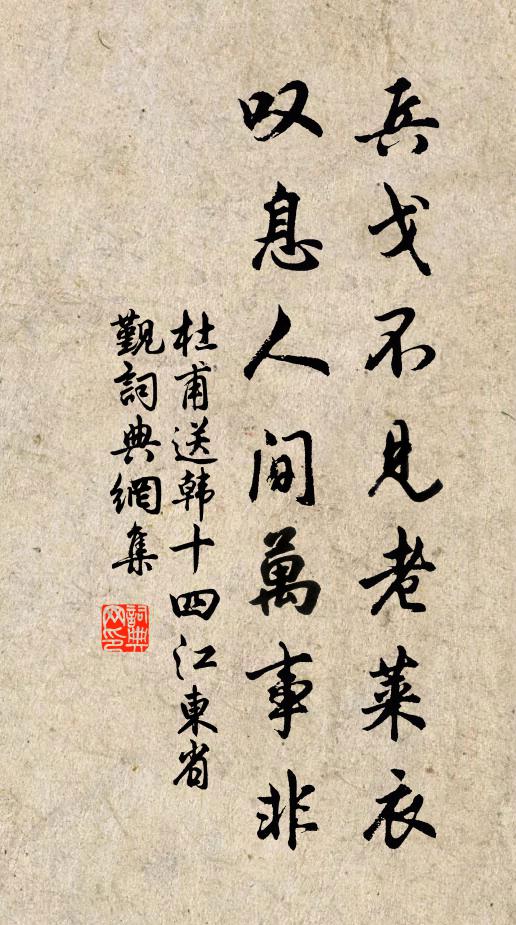 兵戈不见老莱衣
叹息人间萬事非
杜甫送韩十四江東省
觐詞典網集
詞典网印